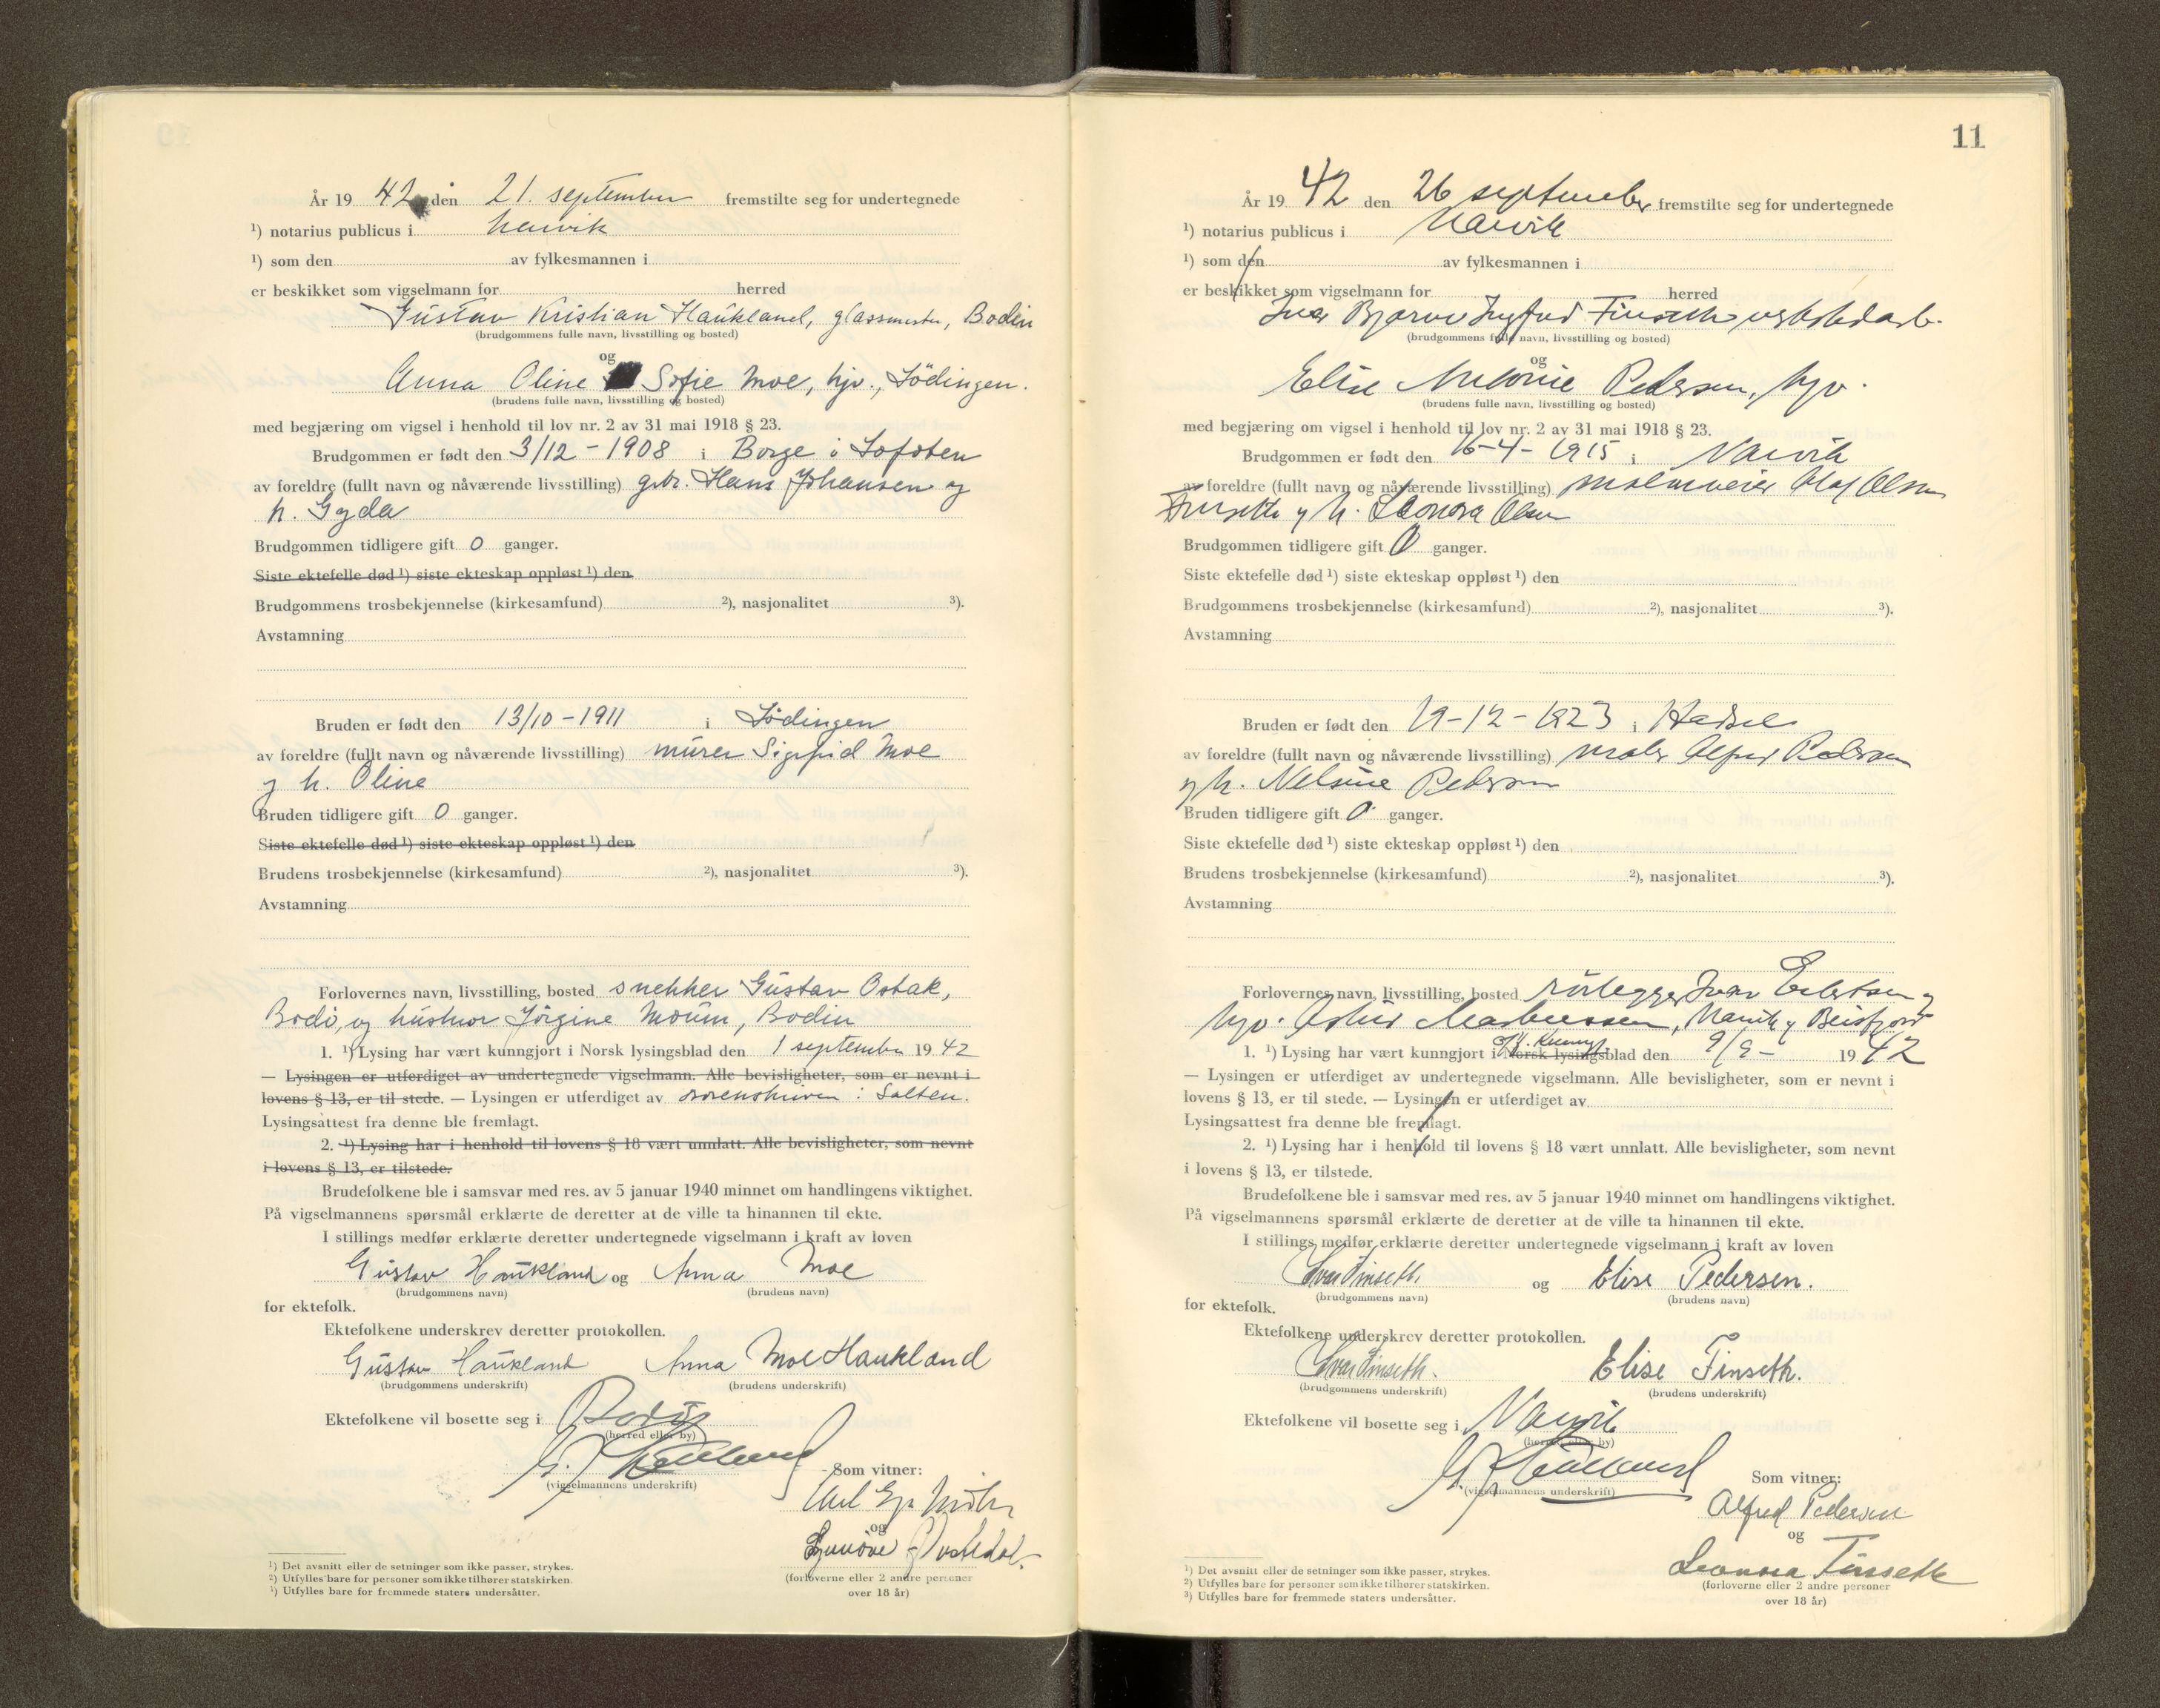 År 19 42 den 21. september fremstilte seg for undertegnede
¹) notarius publicus i Narvik
¹) som den av fylkesmannen i
er beskikket som vigselmann for herred
Gustav Kristian Haukland, glassmester, Bodin
(brudgommens fulle navn, livsstilling og bosted)
og
Anna Oline Sofie Moe, hjv., Lödingen.
(brudens fulle navn, livsstilling og bosted)
med begjæring om vigsel i henhold til lov nr. 2 av 31 mai 1918 § 23.
Brudgommen er født den 3/12 - 1908 i Borge i Lofoten
av foreldre (fullt navn og nåværende livsstilling) gbr. Hans Johansen og
h. Gyda
Brudgommen tidligere gift 0 ganger.
Siste ektefelle død ¹) siste ekteskap oppløst ¹) den
Brudgommens trosbekjennelse (kirkesamfund) ²), nasjonalitet ³).
Avstamning
Bruden er født den 13/10 - 1911 i Lödingen
av foreldre (fullt navn og nåværende livsstilling) murer Sigfrid Moe
og h. Oline
Bruden tidligere gift 0 ganger.
Siste ektefelle død ¹) siste ekteskap oppløst ¹) den
Brudens trosbekjennelse (kirkesamfund) ²), nasjonalitet ³).
Avstamning
Forlovernes navn, livsstilling, bosted snekker Gustav Ostak,
Bodö, og hustru Jörgine Moum, Bodin
1. ¹) Lysing har vært kunngjort i Norsk lysingsblad den 1 september 19 42
— Lysingen er utferdiget av undertegnede vigselmann. Alle bevisligheter, som er nevnt i
lovens § 13, er til stede. — Lysingen er utferdiget av sorenskriveren i Salten.
Lysingsattest fra denne ble fremlagt.
2. ¹) Lysing har i henhold til lovens § 18 vært unnlatt. Alle bevisligheter, som nevnt
i lovens § 13, er tilstede.
Brudefolkene ble i samsvar med res. av 5 januar 1940 minnet om handlingens viktighet.
På vigselmannens spørsmål erklærte de deretter at de ville ta hinannen til ekte.
I stillings medfør erklærte deretter undertegnede vigselmann i kraft av loven
Gustav Haukland og Anna Moe
(brudgommens navn) (brudens navn)
for ektefolk.
Ektefolkene underskrev deretter protokollen.
Gustav Haukland Anna Moe Haukland
(brudgommens underskrift) (brudens underskrift)
Ektefolkene vil bosette seg i Bodö
(herred eller by)
(vigselmannens underskrift)
Som vitner:
og
Synnöve
(forloverne eller 2 andre personer
over 18 år)
¹) Det avsnitt eller de setninger som ikke passer, strykes.
²) Utfylles bare for personer som ikke tilhører statskirken.
³) Utfylles bare for fremmede staters undersåtter.
11
År 19 42 den 26 september fremstilte seg for undertegnede
¹) notarius publicus i Narvik
¹) som den av fylkesmannen i
er beskikket som vigselmann for herred
Ivar Bjarne Ingfrid Finseth
(brudgommens fulle navn, livsstilling og bosted)
og
Elise Pedersen, hjv.
(brudens fulle navn, livsstilling og bosted)
med begjæring om vigsel i henhold til lov nr. 2 av 31 mai 1918 § 23.
Brudgommen er født den 16-4-1915 i Narvik
av foreldre (fullt navn og nåværende livsstilling) malmveier Olaf Olsen
Finseth og h. Leonora Olsen
Brudgommen tidligere gift 0 ganger.
Siste ektefelle død ¹) siste ekteskap oppløst ¹) den
Brudgommens trosbekjennelse (kirkesamfund) ²), nasjonalitet ³).
Avstamning
Bruden er født den 19-12-1923 i Hadsel
av foreldre (fullt navn og nåværende livsstilling) maler Alfred Pedersen
og h. Nelsine Pedersen
Bruden tidligere gift 0 ganger.
Siste ektefelle død ¹) siste ekteskap oppløst ¹) den
Brudens trosbekjennelse (kirkesamfund) ²), nasjonalitet ³).
Avstamning
Forlovernes navn, livsstilling, bosted rörlegger Ivar og
hjv. Markussen, Narvik og Beisfjord
1. ¹) Lysing har vært kunngjort i Norsk lysingsblad den 9/9 - 19 42
— Lysingen er utferdiget av undertegnede vigselmann. Alle bevisligheter, som er nevnt i
lovens § 13, er til stede. — Lysingen er utferdiget av
Lysingsattest fra denne ble fremlagt.
2. ¹) Lysing har i henhold til lovens § 18 vært unnlatt. Alle bevisligheter, som nevnt
i lovens § 13, er tilstede.
Brudefolkene ble i samsvar med res. av 5 januar 1940 minnet om handlingens viktighet.
På vigselmannens spørsmål erklærte de deretter at de ville ta hinannen til ekte.
I stillings medfør erklærte deretter undertegnede vigselmann i kraft av loven
Ivar Finseth. og Elise Pedersen.
(brudgommens navn) (brudens navn)
for ektefolk.
Ektefolkene underskrev deretter protokollen.
Ivar Finseth. Elise Finseth.
(brudgommens underskrift) (brudens underskrift)
Ektefolkene vil bosette seg i Narvik
(herred eller by)
(vigselmannens underskrift)
Som vitner:
Alfred Pedersen
og
Leonora Finseth
(forloverne eller 2 andre personer
over 18 år)
¹) Det avsnitt eller de setninger som ikke passer, strykes.
²) Utfylles bare for personer som ikke tilhører statskirken.
³) Utfylles bare for fremmede staters undersåtter.